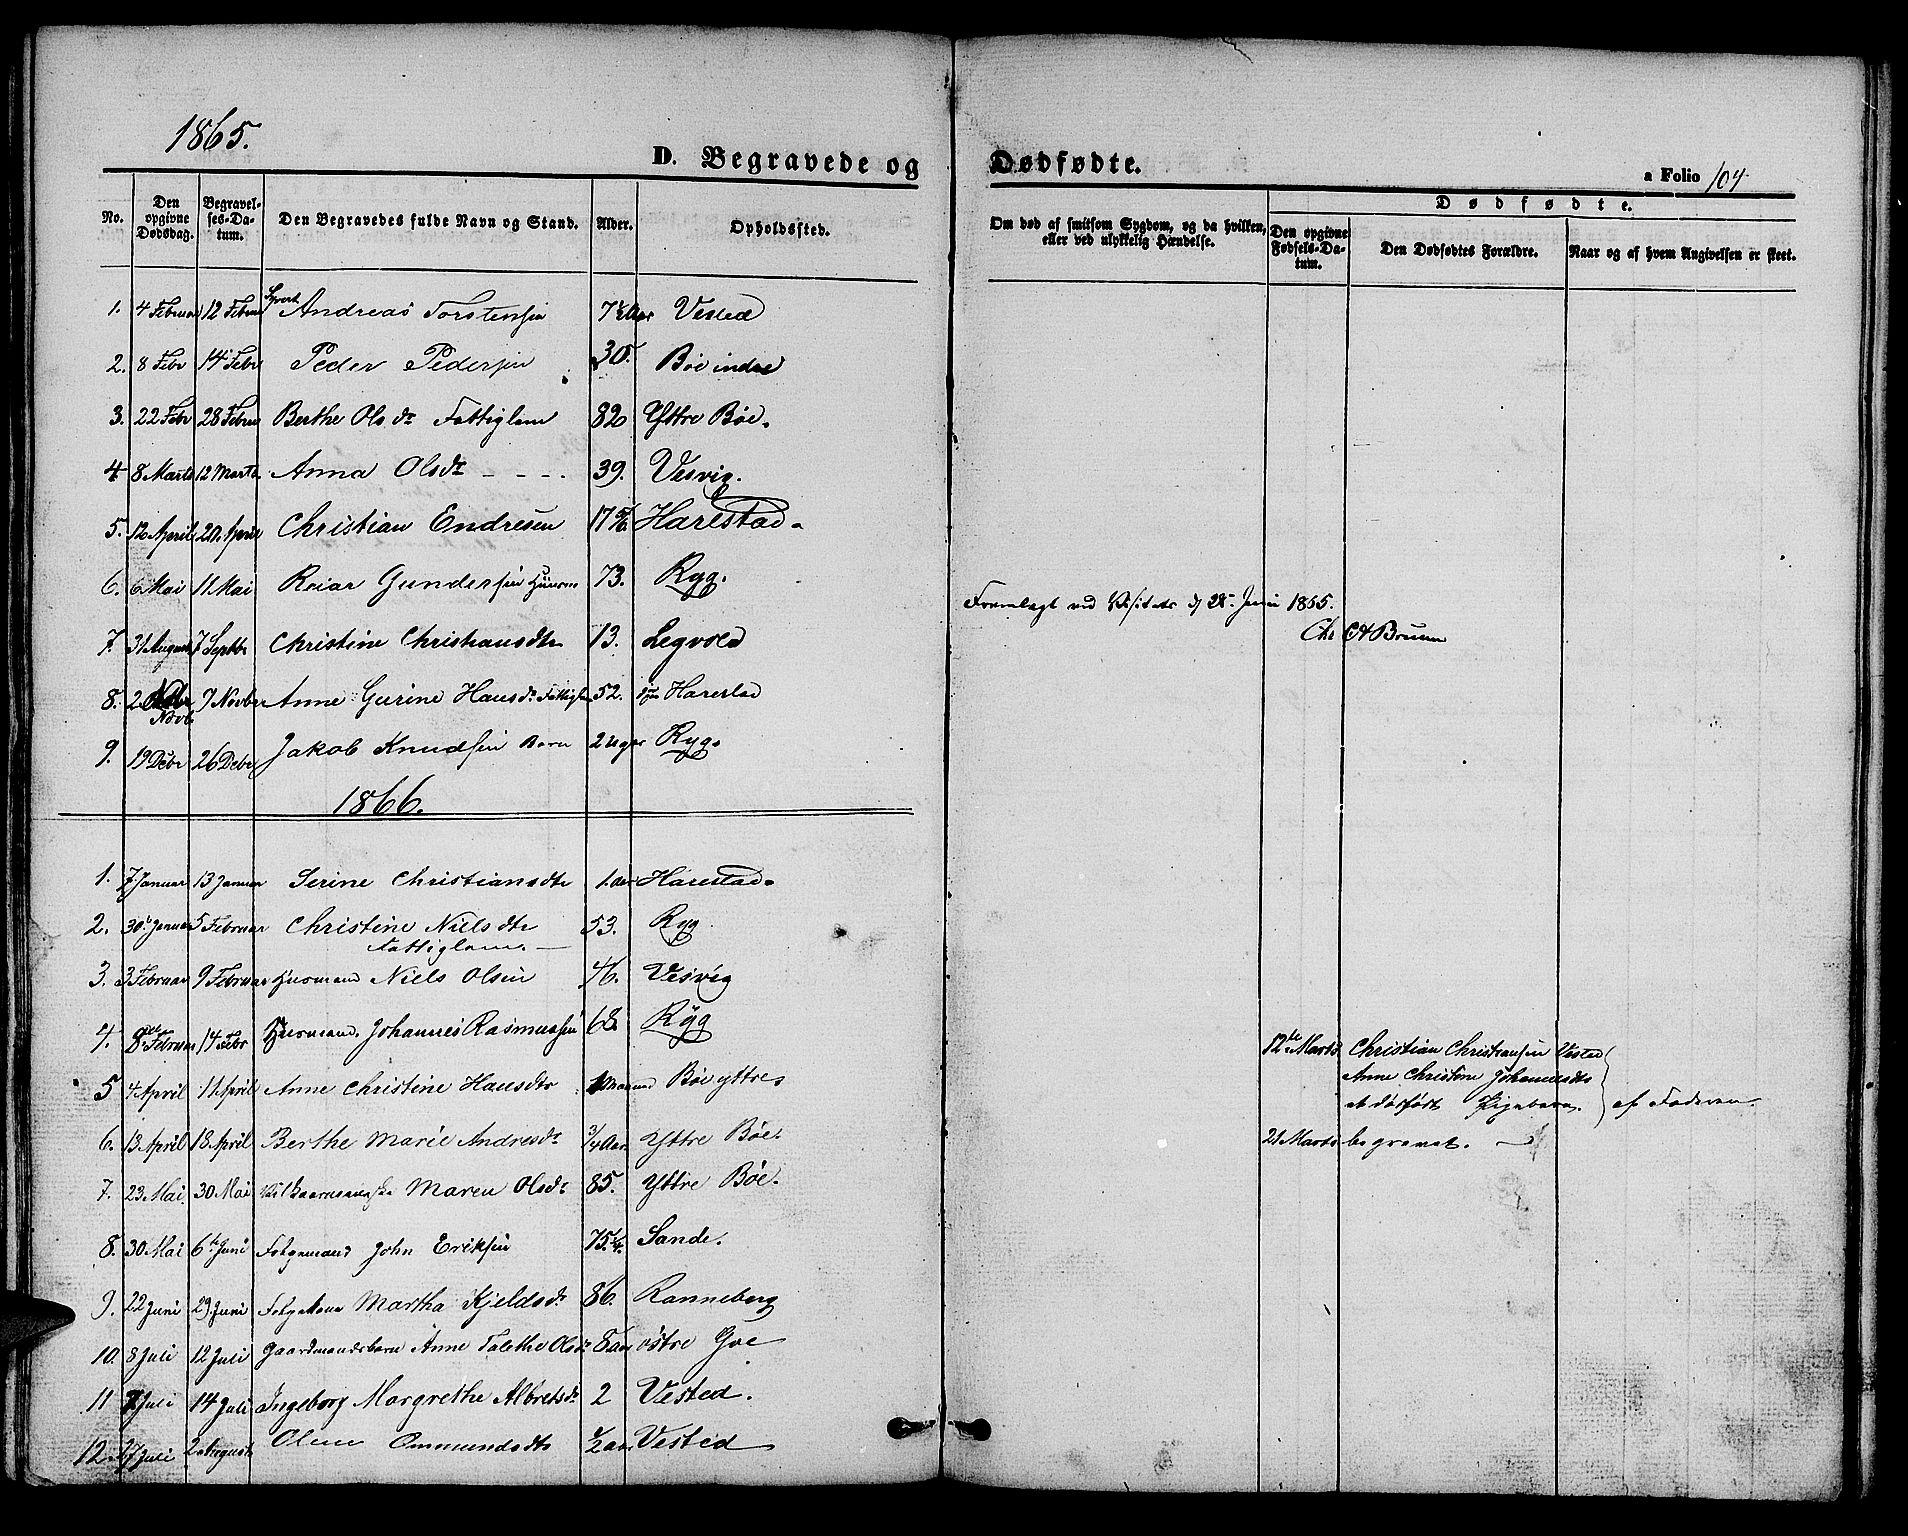 1865.
D. Begravede og Dødfødte.
a Folio 104
No.
Den opgivne Dødsdag.
Begravelses-Datum.
Den Begravedes fulde Navn og Stand.
Alder.
Opholdssted.
Om død af smitsom Sygdom, og da hvilken, eller ved ulykkelig Hændelse.
Dødfødte.
Den opgivne Fødsels-Datum.
Den Dødfødtes Forældre.
Naar og af hvem Angivelsen er skeet.
1. 4 Februar 12 Febru Andreas Torstensen 7½ Aar Vested
2. 8 Febr 14 Febr Peder Pedersen 30. Bøe indre
3. 22 Febr 28 Febru Berthe Olsdr Fattiglem 82 Yttre Bøe.
4 8 Marts 12 Marts Anna Olsdr - - - - 39. Vesvig.
5. 12 April 20 April Christian Endresen 17 5/6 Harestad.
6. 6 Mai 11 Mai Reiar Gundersen 73. Ryg.
Fremlagt ved Visitats d 25 Juni 1865.
7. 31 August 7 Septbr Christine Christiansdtr 13. Legvold
8. 2 Novb. 7 Novbr Anne Gurine Hansdr Fattigl. 52. Harestad
9. 19 Debr 26 Debr Jakob Knudsen Barn 2 Uger Ryg.
1866.
1. 7 Januar 13 Januar Serine Christiansdtr 1. Aar Harestad.
2. 30 Januar 5 Februar Christine Nielsdtr 53. Ryg
Fattiglem. —
3. 3 Februar 9 Februar Huusmand Niels Olsen 46. Vesvig
4. 8de Februar 14 Febr Huusmand. Johannes Rasmussen 68. Ryg
12te Marts Christian Christiansen Vested
Anne Christine Johannesdtr
et dødfødt Pigebarn. af Faderen
5 4 April 11 April Anne Christine Hansdtr 1 Maaned Bøe yttre
6. 13 April 18 April Berthe Marie Andresdr 3/4 Aar Yttre Bøe.
21 Marts begravet. —
7. 23 Mai 30 Mai Maren Olsdr 85. Yttre Bøe.
8. 30 Mai 6te Juni Folgemand John Eriksen 75¼. Sande.
9. 22 Juni 29 Juni Folgekone Martha Kjeldsdr 86. Ranneberg
10. 8 Juli 12 Juli Gaardmandsbarn Anne Talethe Olsdr 8 aar østre Goe
11 7 Juli 14 Juli Ingeborg Margrethe Albretsdr 2 Vested.
12. 27 Juli 2 August Olene Ommundsdtr ½ aar Vested